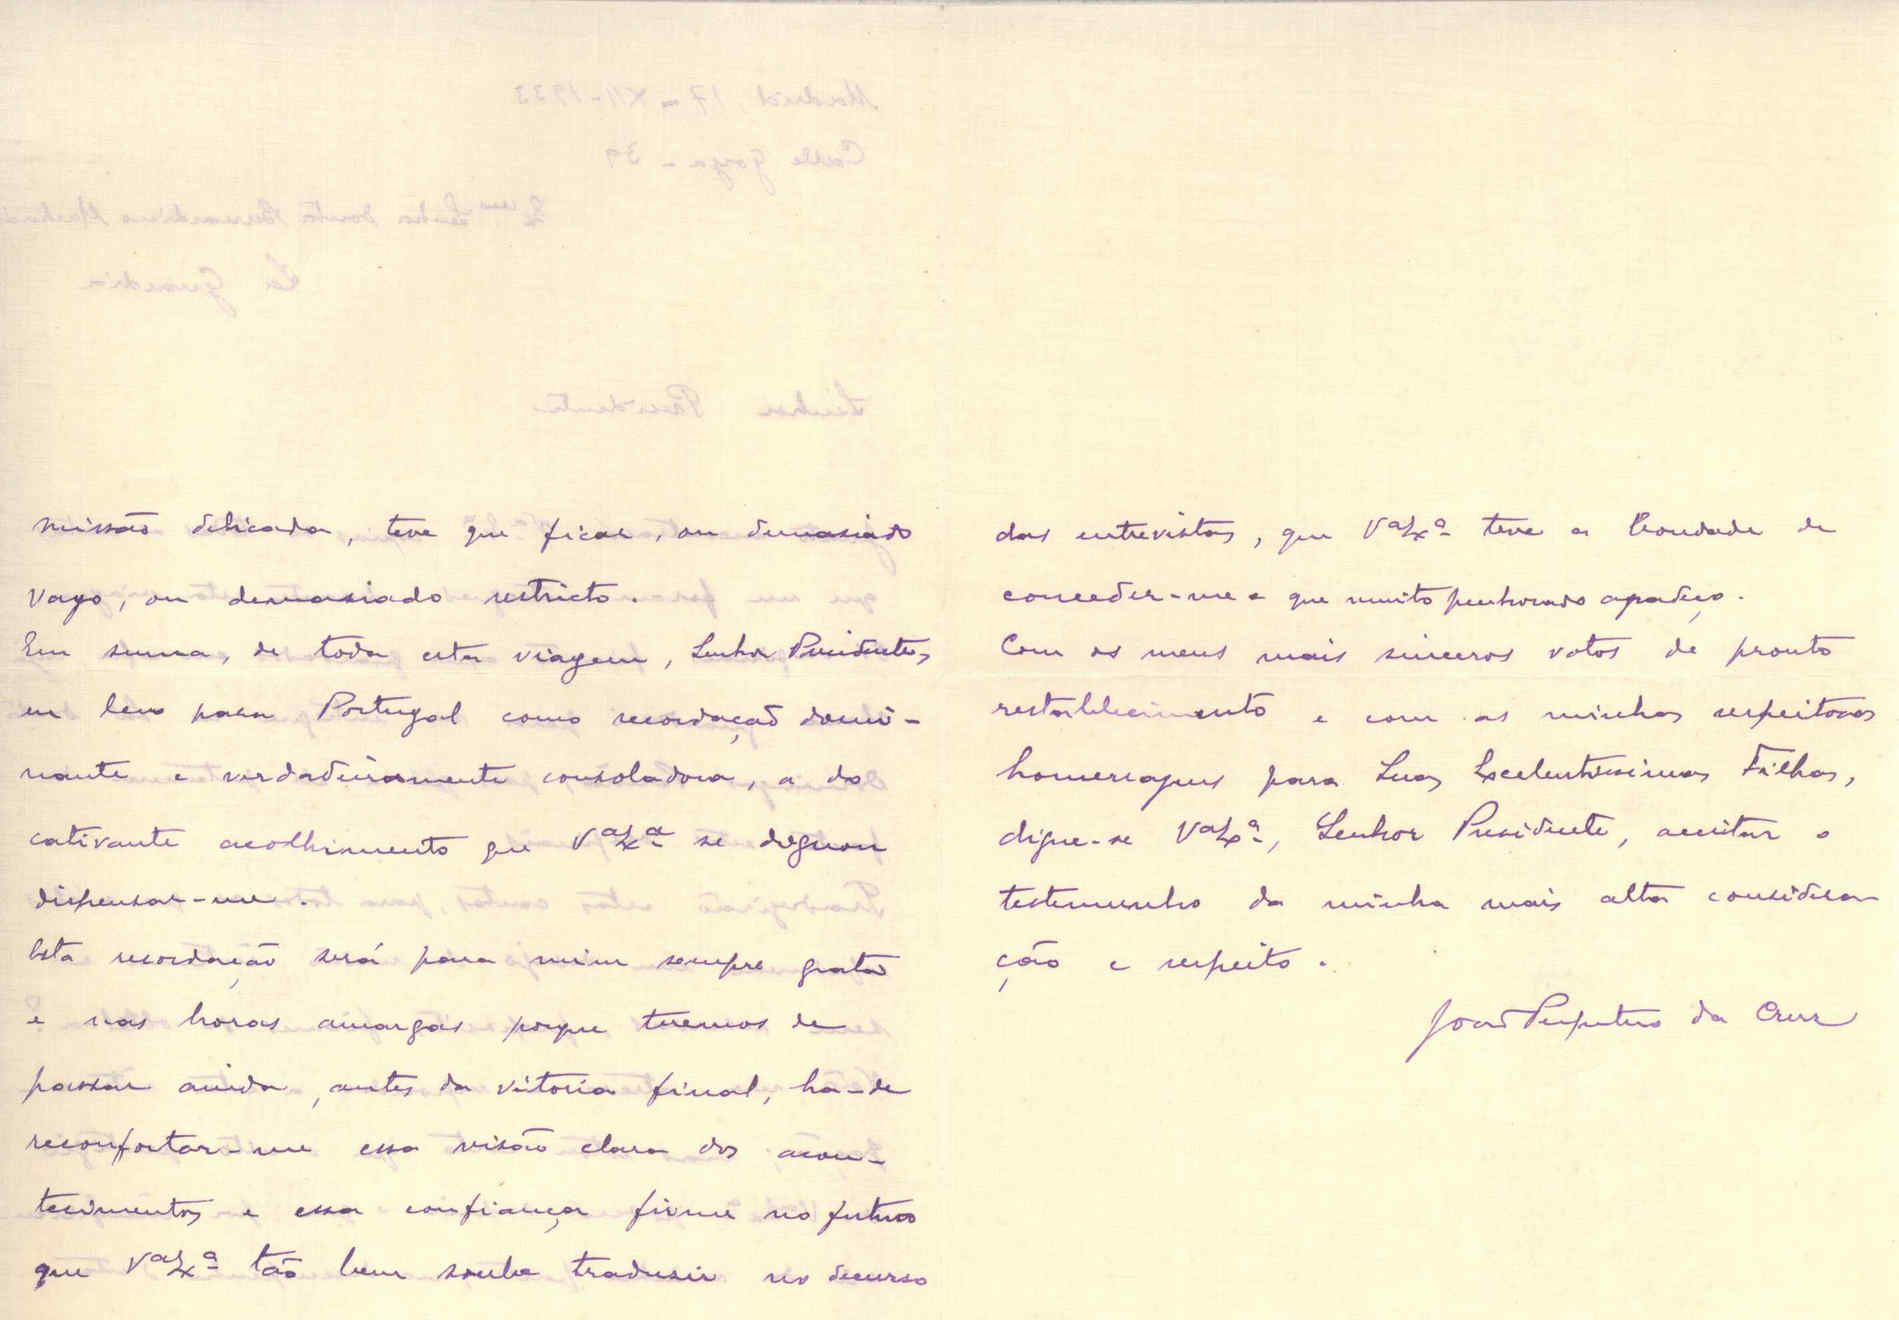 missão delicada, teve que ficar, ou demasiado
vago, ou demasiado restricto.
Em suma, de toda esta viagem, Senhor Presidente,
eu levo para Portugal como recordação domi-
nante e verdadeiramente consoladora, a do
cativante acolhimento que Vª Exª se dignou
dispensar-me.
Esta recordação será para mim sempre grata
e nas horas amargas porque teremos de
passar ainda, antes da vitoria final, ha-de
reconfortar-me essa visão clara dos acon-
tecimentos e essa confiança firme no futuro
que Vª Exª tão bem soube tradusir no decurso
das entrevistas, que Vª Exª teve a bondade de
conceder-me e que muito penhorado agradeço.
Com os meus mais sinceros votos de pronto
restablecimento e com as minhas respeitosas
homenagens para Suas Excelentissimas Filhas,
digne-se Vª Exª, Senhor Presidente, aceitar o
testemunho da minha mais alta considera
ção e respeito.
João Perpetuo da Cruz